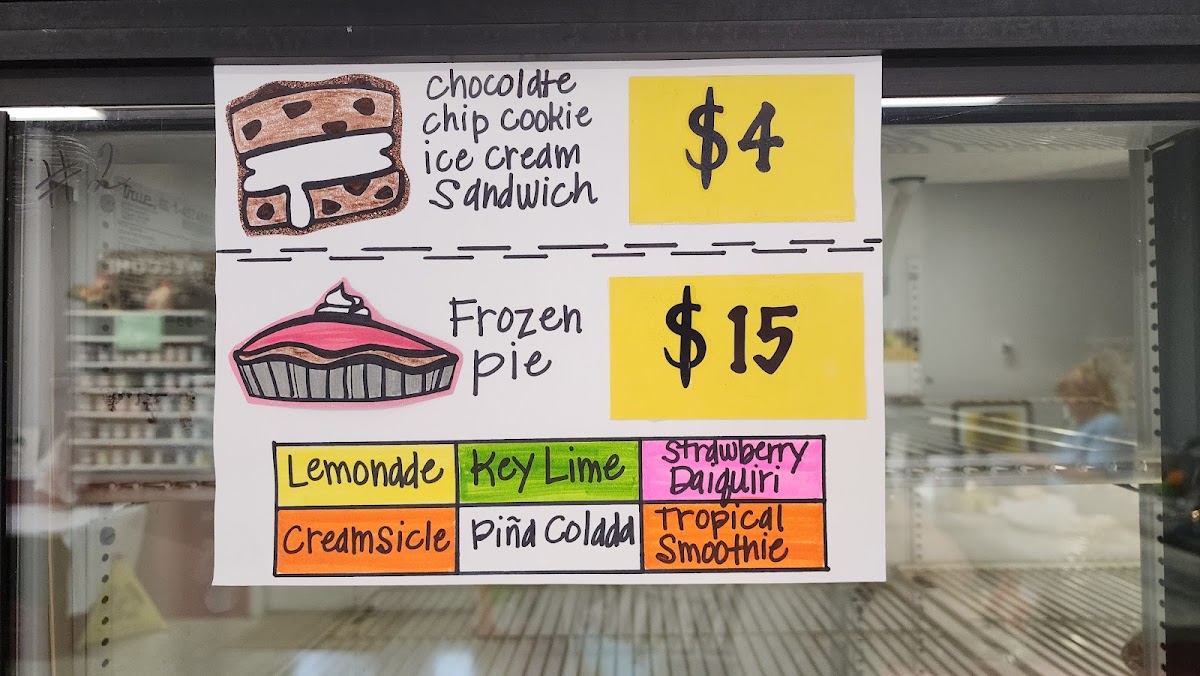 Chocolate
chip cookie
ice cream
Sandwich
$4
Frozen
pie
$15
Lemonade
Key Lime
Strawberry
Daiquiri
Creamsicle
Piña Colada
Tropical
Smoothie
#2